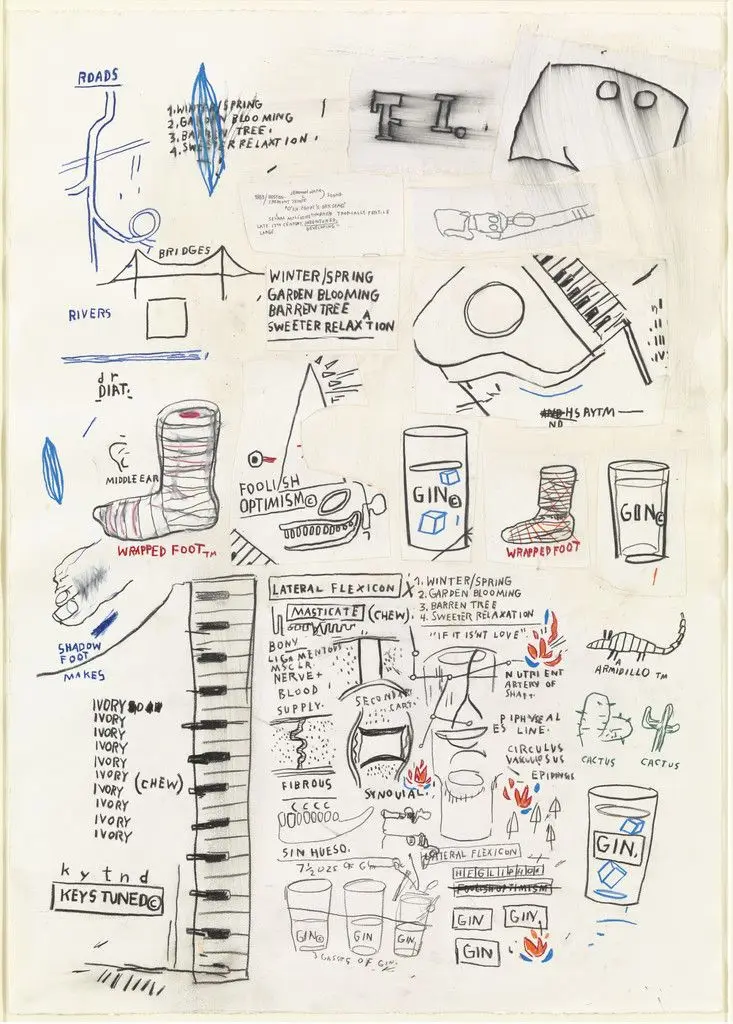 ROADS
1. WINTER/SPRING
2. GARDEN BLOOMING
3. BARREN TREE.
4. SWEETER RELAXTION.
T I.
BRIDGES
RIVERS
WINTER/SPRING
GARDEN BLOOMING
BARREN TREE
A
SWEETER RELAXTION
dr
DIAT.
ND
MIDDLE EAR
WRAPPED FOOT TM
FOOLISH
OPTIMISM©
GIN©
WRAPPED FOOT
GIN©
SHADOW
FOOT
MAKES
LATERAL FLEXICON
X
MASTICATE (CHEW).
1. WINTER/SPRING
2. GARDEN BLOOMING
3. BARREN TREE
4. SWEETER RELAXATION
"IF IT ISNT LOVE"
BONY
LIGAMENTOUS
MSCLR
NERVE+
BLOOD
SUPPLY.
SECONDARY
CART.
NUTRIENT
ARTERY OF
SHAFT.
ARMIDILLO TM
IVORY
IVORY
IVORY
IVORY
IVORY
IVORY (CHEW)
IVORY
IVORY
IVORY
IVORY
PIPHYSEAL
ES LINE.
CIRCULUS
VAKULOSUS
CACTUS
CACTUS
FIBROUS
SYNOVIAL.
CCCC
SIN HUESO.
GIN.
kytnd
KEYSTUNED©
LATERAL FLEXICON
FOOLISH OPTIMISM
GIN©
GIN
GIN
GIN
GIN.
GIN
3 GASSES OF GIN.